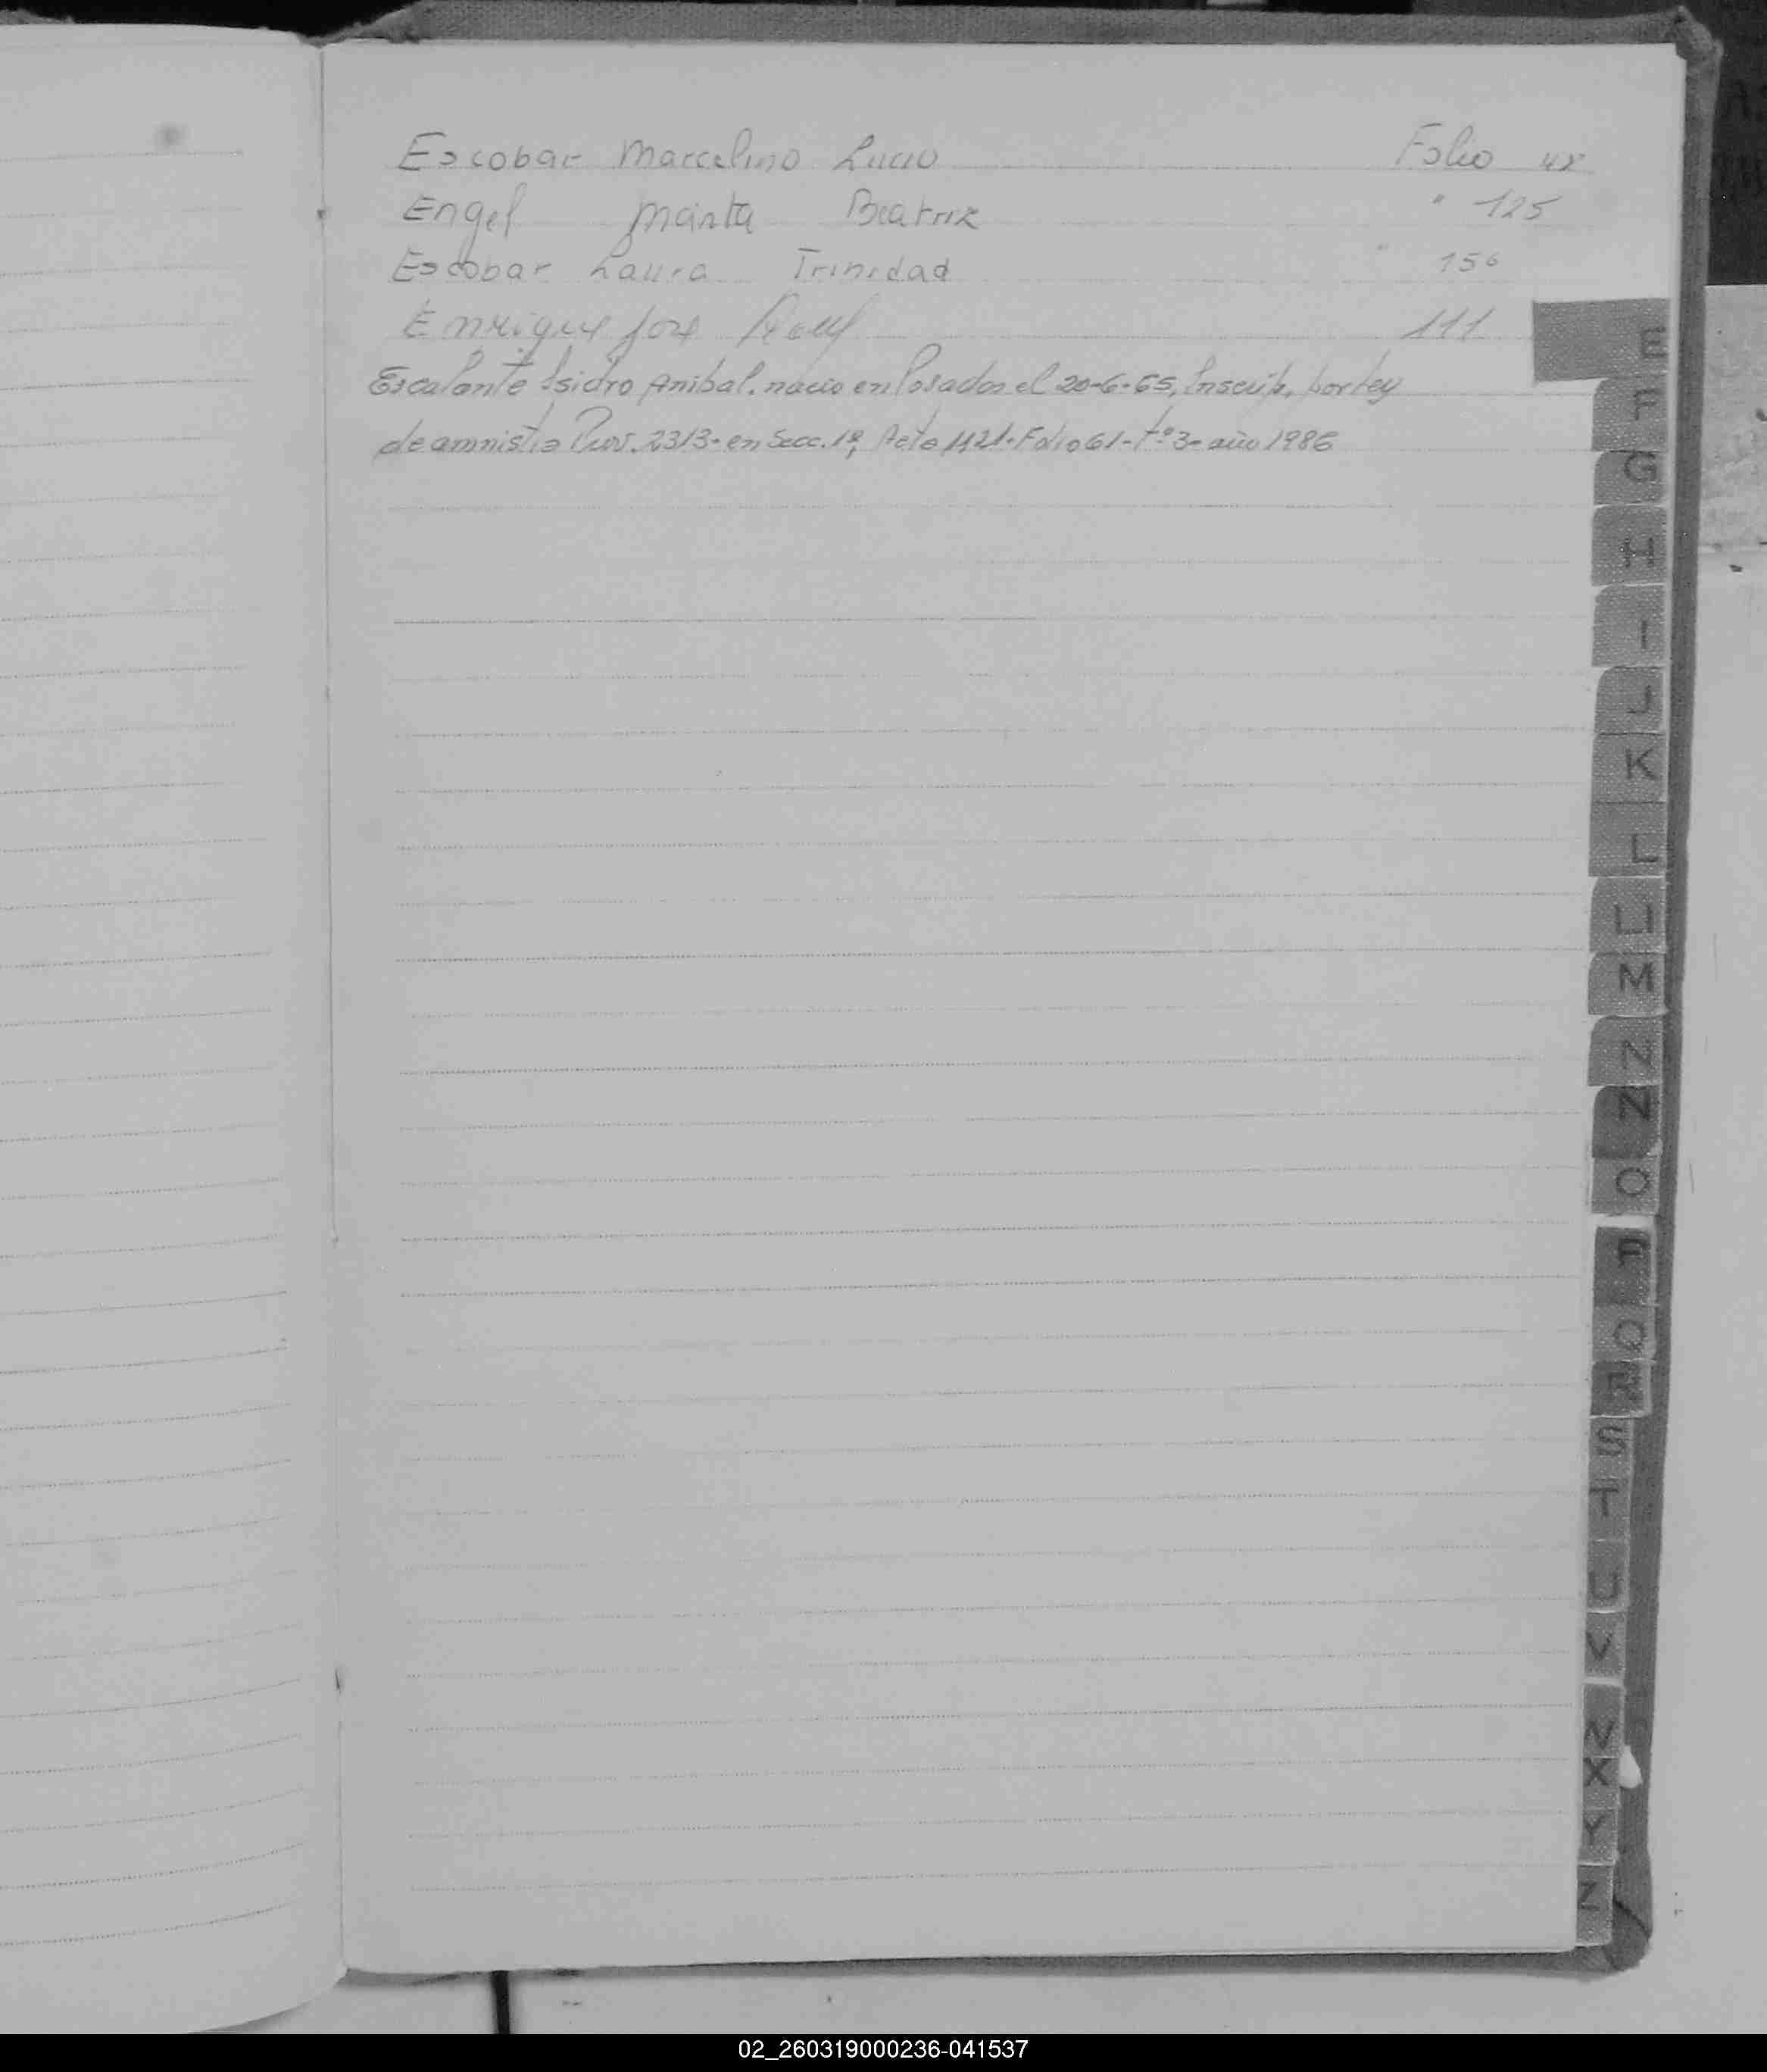 Escobar Marcelino Lucio Folio 48
Engel Marta Beatriz " 125
Escobar Laura Trinidad " 156
Enrique José Raul 111
Escalante Isidro Anibal. nacio en Posadas el 20-6-65, Inscrip. por ley
de amnistia 2313- en Secc. 1ª, Acta 1421- Folio 61- tº 3- año 1986
E
F
G
H
I
J
K
L
M
N
N
O
P
Q
R
S
T
U
V
X
Y
Z
02_260319000236-041537